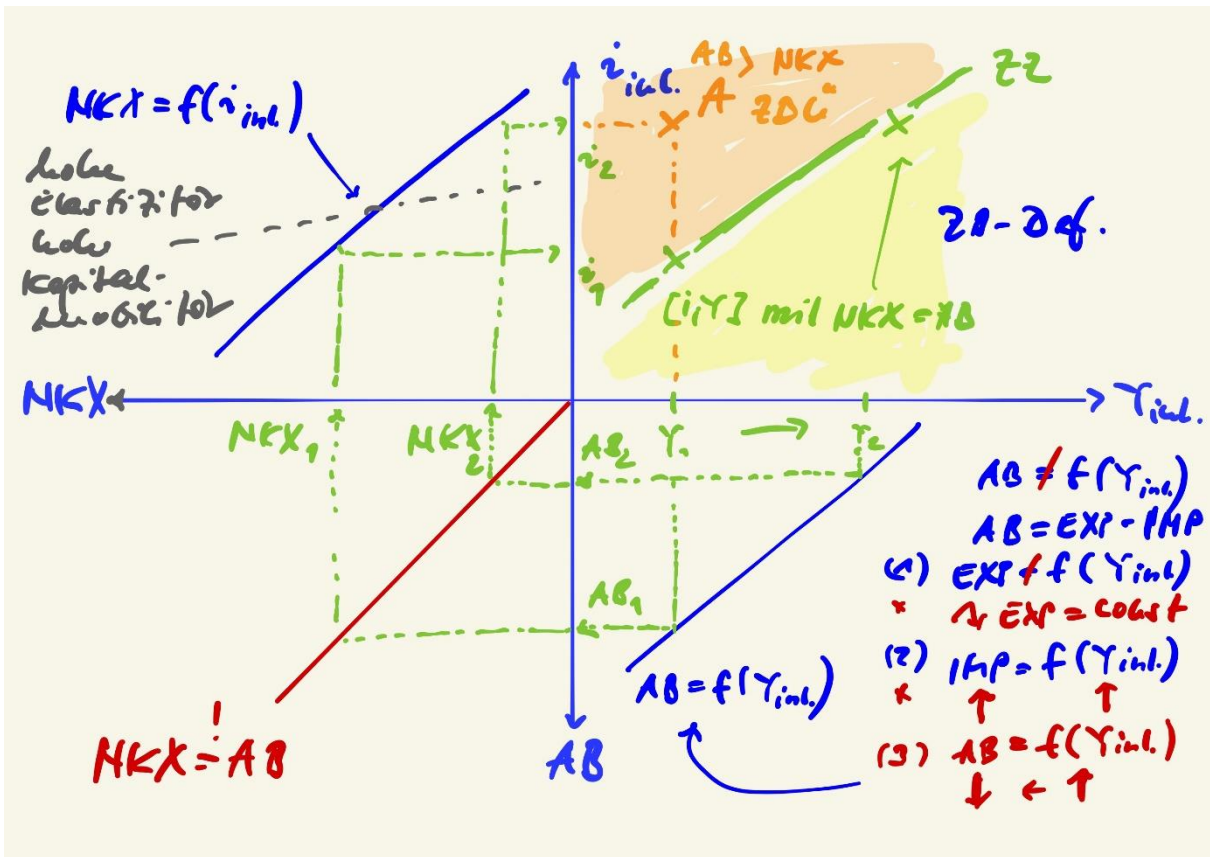 NKX = f(i inl.)
hohe
Elastizität
hohe
Kapital-
mobilität
i inl.
AB > NKX
A ZDG
ZZ
i₂
i₁
ZB-Def.
[i,Y] mit NKX = AB
NKX
Y inl.
NKX₁
NKX₂
AB₂
Y₁
Y₂
AB₁
AB ≠ f(Y inl.)
AB = EXP - IMP
(1) EXP ≠ f(Y inl.)
EXP = const
(2) IMP = f(Y inl.)
(3) AB = f(Y inl.)
AB = f(Y inl.)
NKX = AB
AB